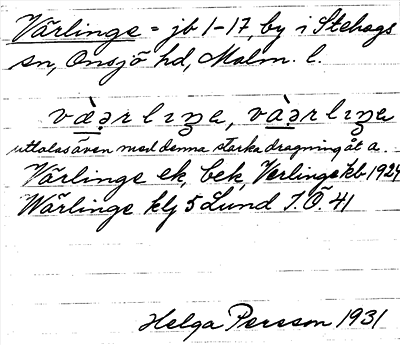 Värlinge = jb 1-17, by i Stehags
sn, Onsjö hd, Malm. l.
uttalas även med denna starka dragning åt a.
Värlinge ek, bek, Verlinge kb 1924
Wärlinge klj 5 Lund T.Ö. 41
Helga Persson 1931